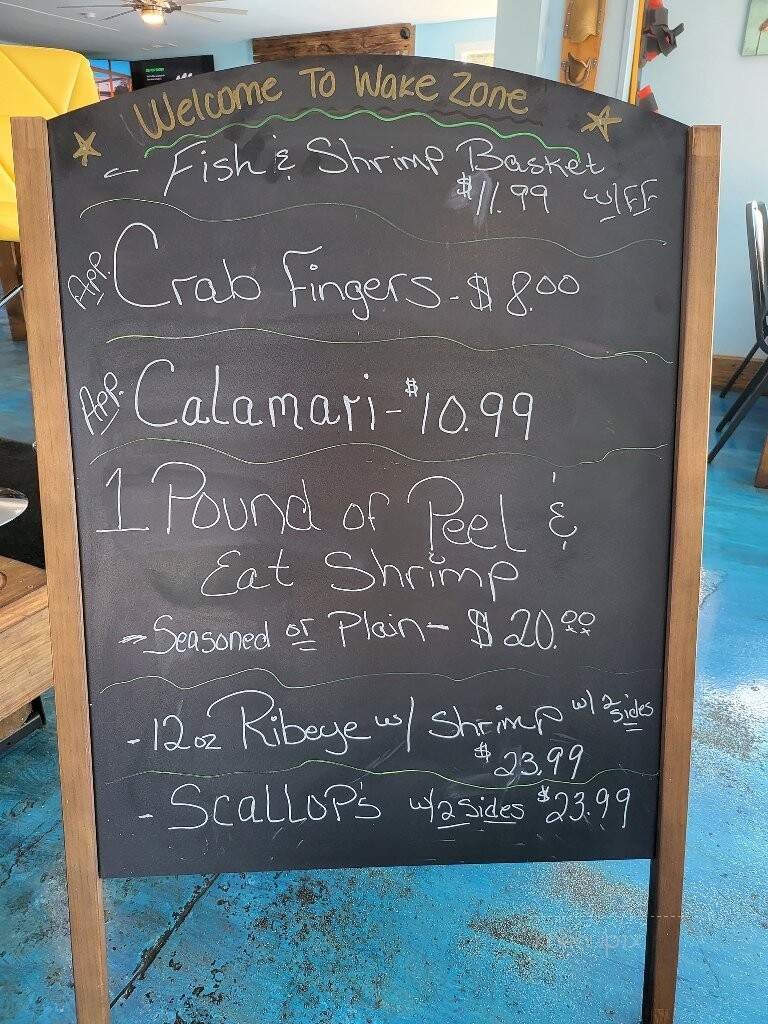 Welcome To Wake Zone
- Fish & Shrimp Basket
$11.99 w/FF
App. Crab Fingers - $8.00
App. Calamari - $10.99
1 Pound of Peel &
Eat Shrimp
- Seasoned or Plain - $20.00
- 12oz Ribeye w/ Shrimp w/ 2 Sides
$23.99
- Scallop's w/2 Sides $23.99